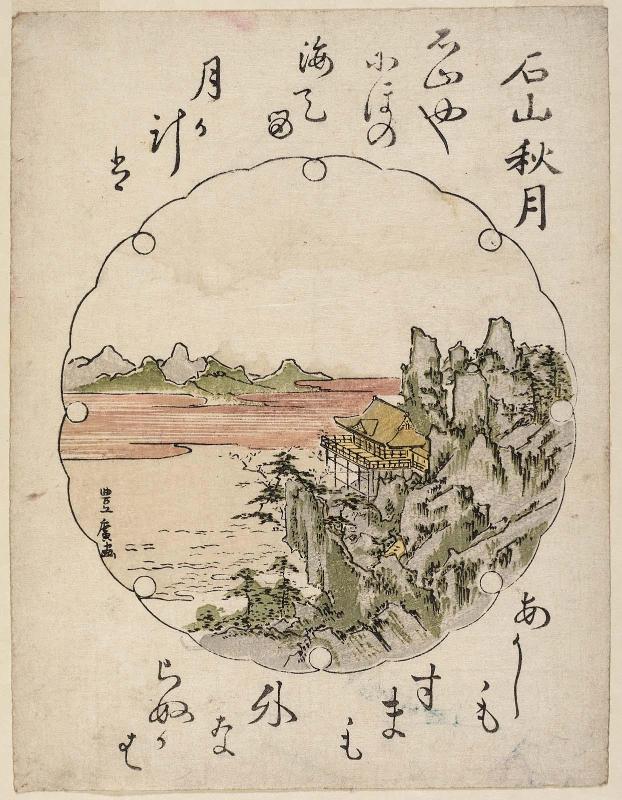 石山秋月
石山や
にほの
海て
る
月か
け
は
あかし
も
す
ま
も
外
な
らぬか
は
豊廣画